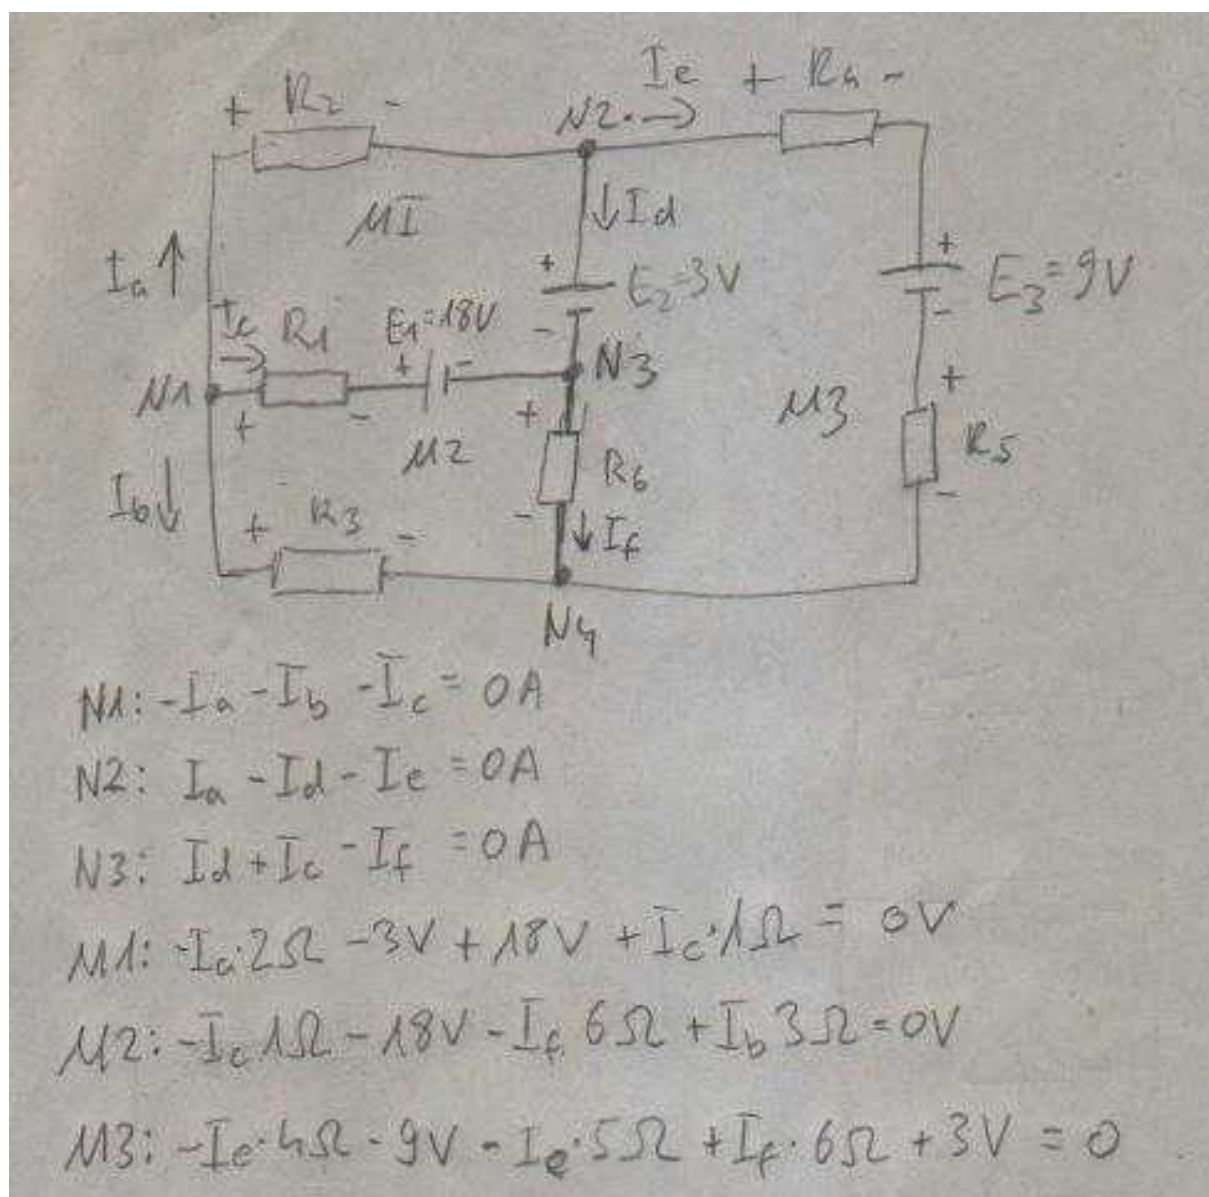 Ie + R4 -
+ R2 - N2
MI
Id
Ia
+
E2=3V
+
E3=9V
-
Ic R1 E1=18V
+ -
-
N3
N1
+ -
M2
+
M3
+
R5
-
R6
-
Ib
+ R3 -
If
N4
N1: -Ia -Ib -Ic = 0A
N2: Ia -Id -Ie = 0A
N3: Id + Ic -If = 0A
M1: -Ia·2Ω -3V + 18V + Ic·1Ω = 0V
M2: -Ic 1Ω - 18V - If 6Ω + Ib 3Ω = 0V
M3: -Ie·4Ω - 9V - Ie·5Ω + If·6Ω + 3V = 0